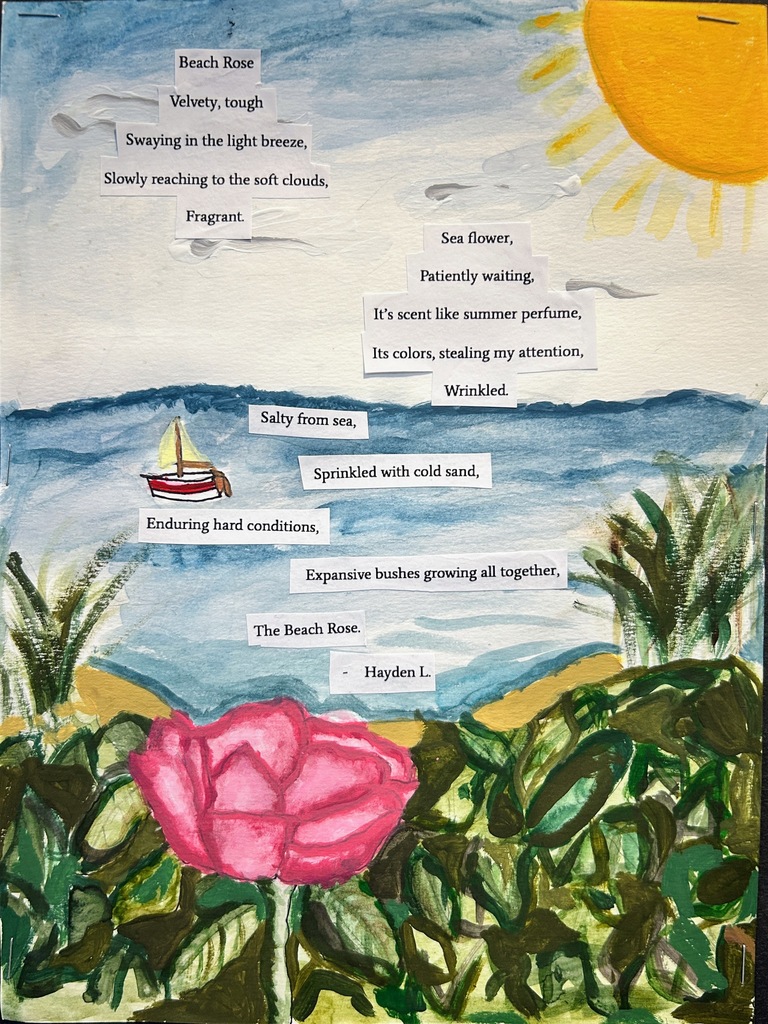 Beach Rose
Velvety, tough
Swaying in the light breeze,
Slowly reaching to the soft clouds,
Fragrant.
Sea flower,
Patiently waiting,
It's scent like summer perfume,
Its colors, stealing my attention,
Wrinkled.
Salty from sea,
Sprinkled with cold sand,
Enduring hard conditions,
Expansive bushes growing all together,
The Beach Rose.
- Hayden L.